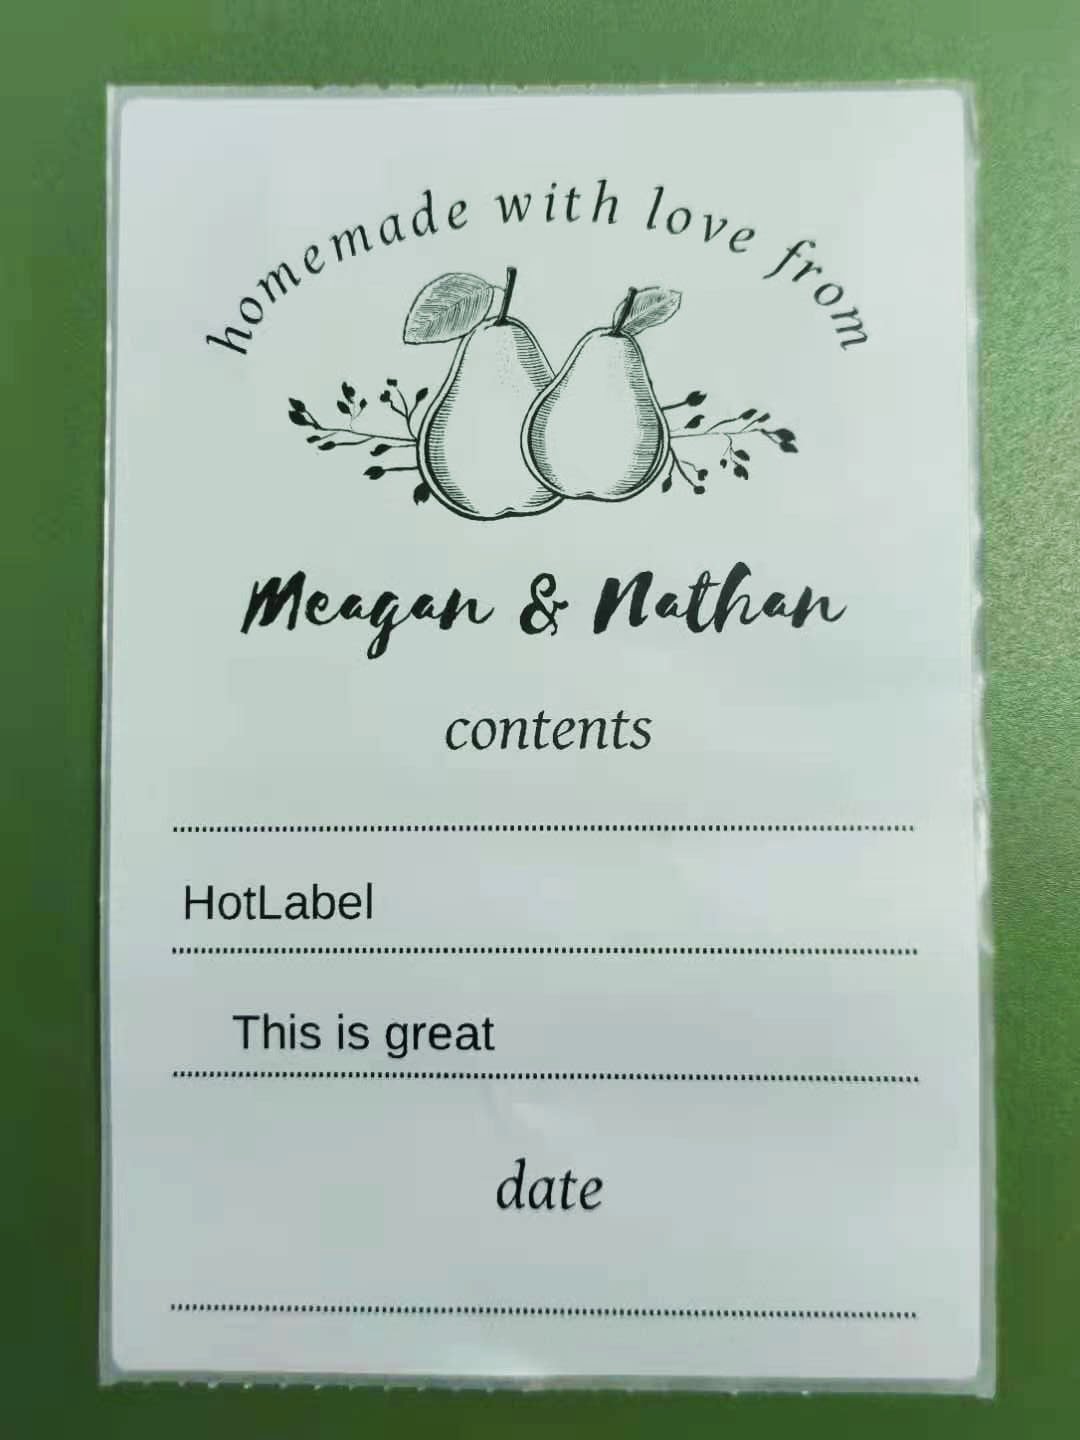 homemade with love from
Meagan & Nathan
contents
HotLabel
This is great
date